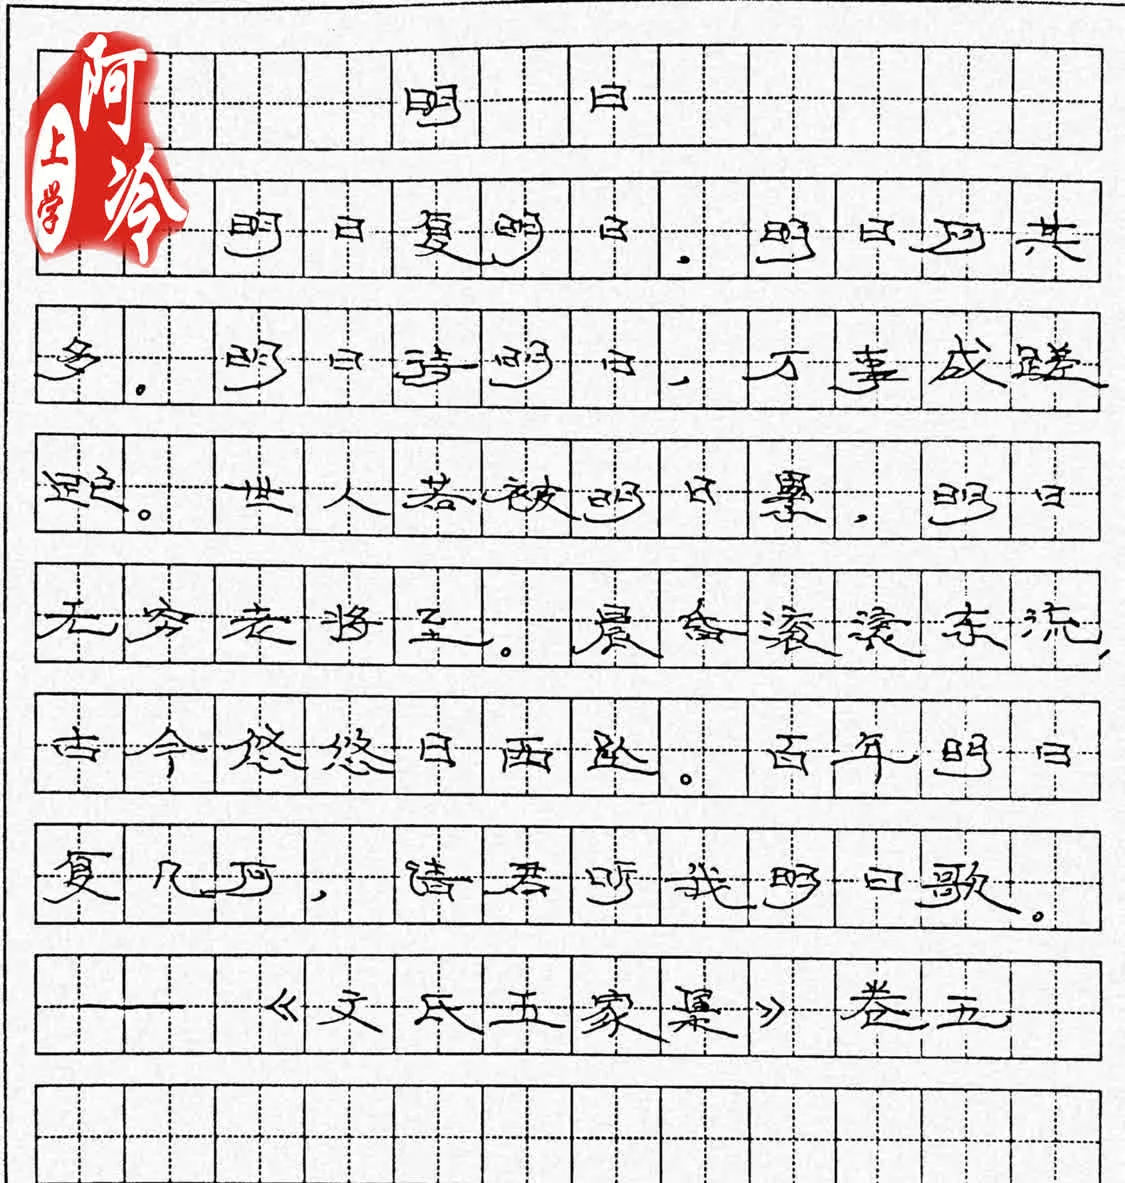 阿冷
上学
明日
明日复明日.明日何其
多。明日待明日,万事成蹉
跎。世人若被明日累,明日
无穷老将至。晨昏滚滚东流,
古今悠悠日西坠。百年明日
复几何,请君听我明日歌。
——《文氏五家集》卷五